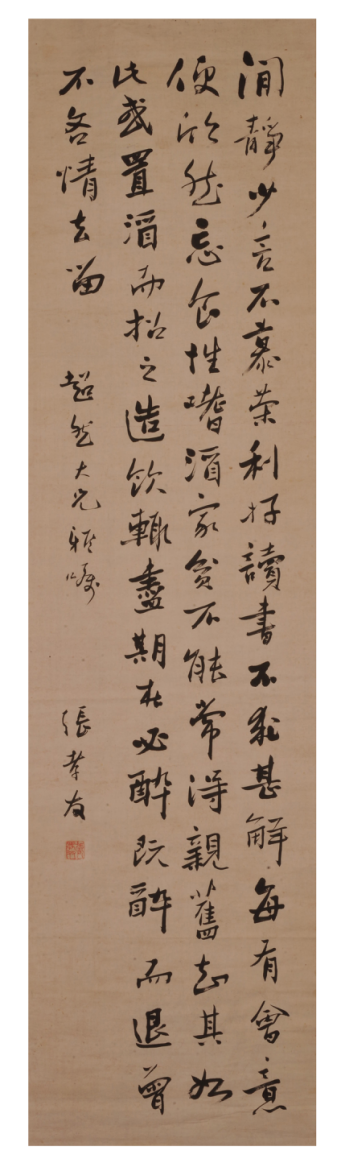 閒靜少言不慕榮利好讀書不求甚解每有會意
便欣然忘食性嗜酒家貧不能常得親舊知其如
此或置酒而招之造飲輒盡期在必醉既醉而退曾
不吝情去留
超然大兄雅屬
張孝友